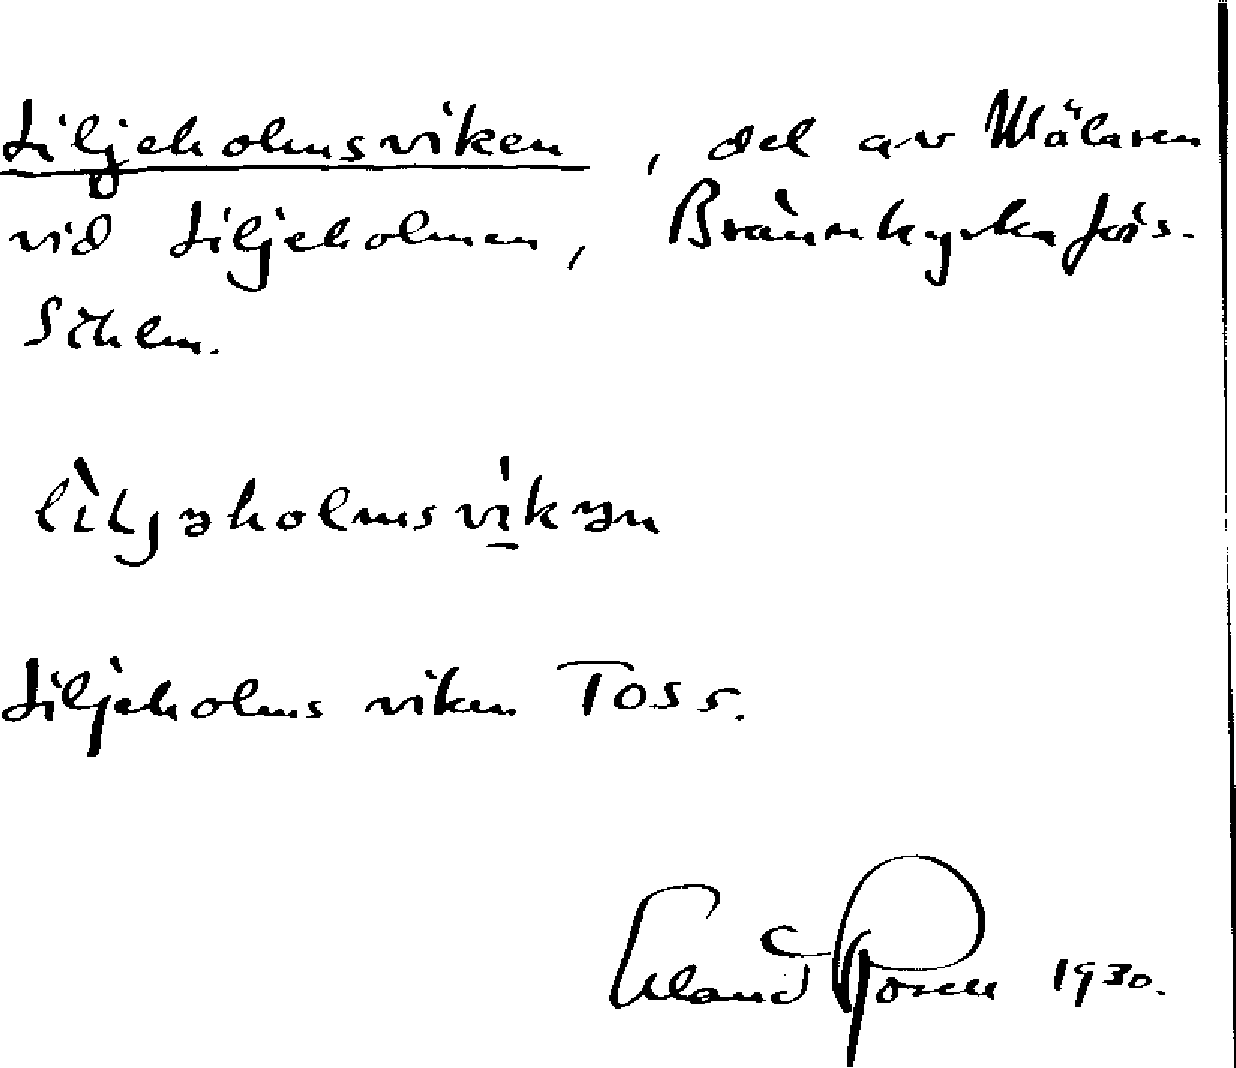 Liljeholmsviken, del av Mälaren
vid Liljeholmen, Brännkyrka förs.
Sthlm.
lìljəholmsvi̠kən
Liljeholms viken Toss.
Erland Rosell 1930.